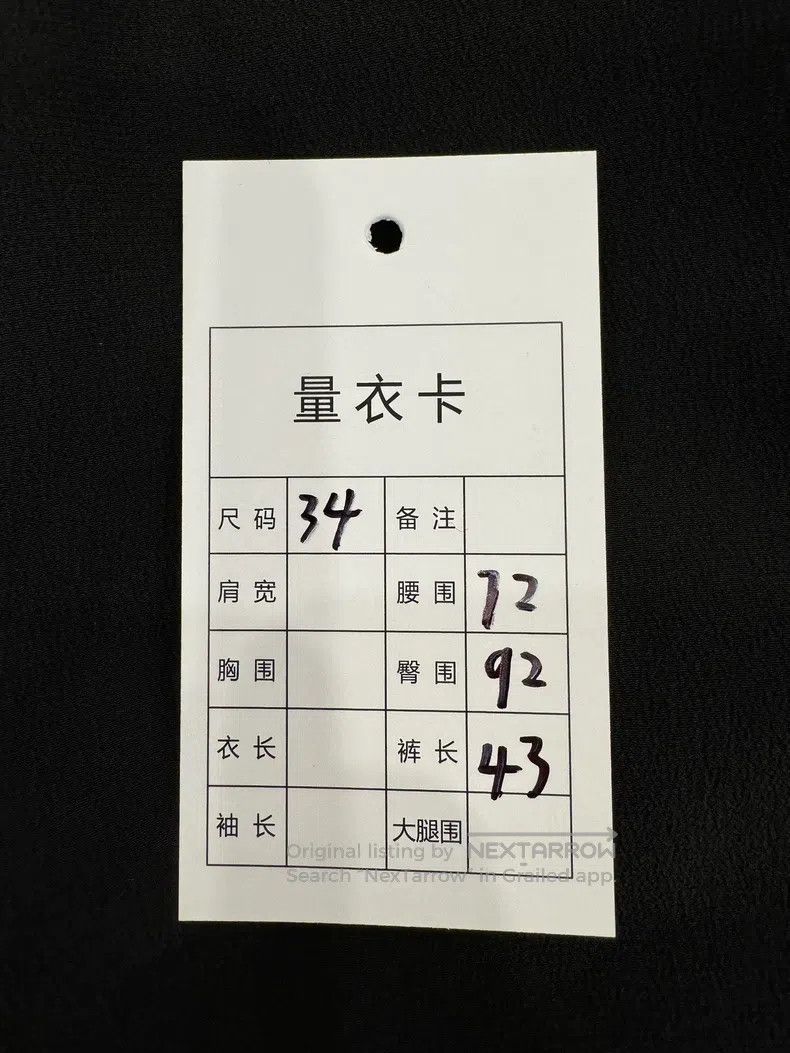 量衣卡
尺码 34 备注
肩宽 腰围 72
胸围 臀围 92
衣长 裤长 43
袖长 大腿围
Original listing by NEXTARROW
Search "NexTarrow" in Grailed app